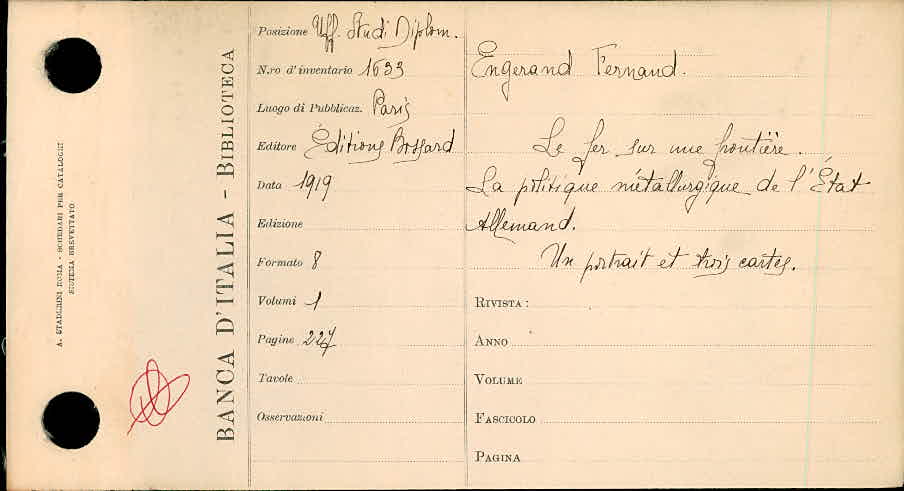 A. STADERINI ROMA - SCHEDARI PER CATALOGHI
SISTEMA BREVETTATO
BANCA D'ITALIA - BIBLIOTECA
Posizione Uff. Studi Diplom.
N.ro d'inventario 1633
Luogo di Pubblicaz. Paris
Editore Éditions Bossard
Data 1919
Edizione
Formato 8
Volumi 1
Pagine 227
Tavole
Osservazioni
Engerand Fernand.
Le fer sur une frontière.
La politique métallurgique de l'État
Allemand.
Un portrait et trois cartes.
RIVISTA:
ANNO
VOLUME
FASCICOLO
PAGINA